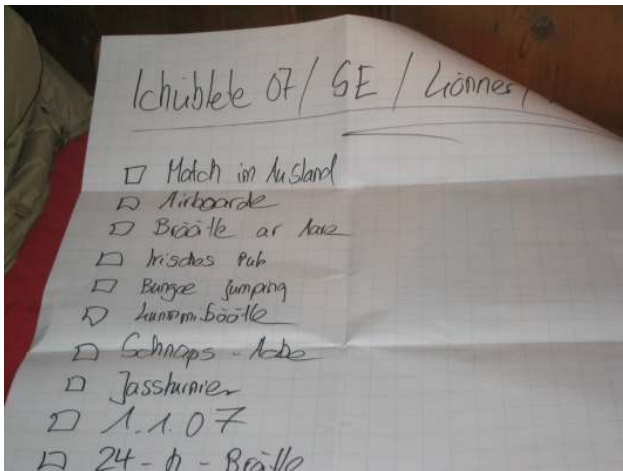 Ichüblete 07 / SE / Lönnes /
Match im Ausland
Airboarde
Bräätle ar Aare
Irisches Pub
Bungee Jumping
Schnaps-Abe
Jassturnier
1.1.07
24-h-Brätle